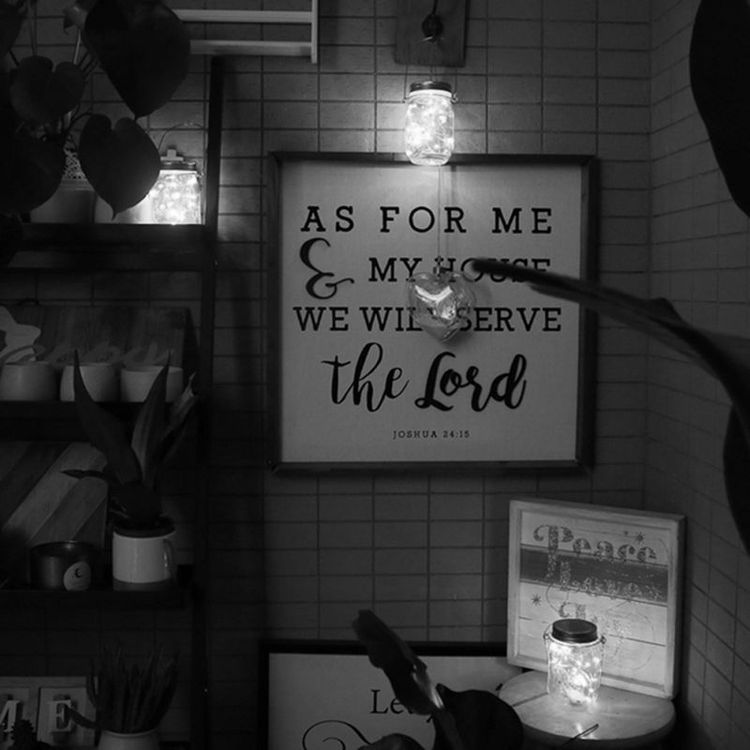 AS FOR ME
& MY HOUSE
WE WILL SERVE
the Lord
JOSHUA 24:15
Peace
Love
M E